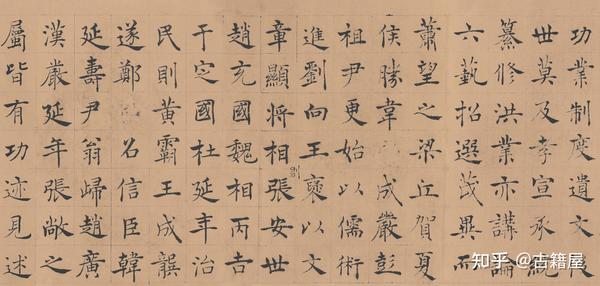 功業制度遺文後
世莫及孝宣承統
纂修洪業亦講論
六藝招選茂異而
蕭望之梁丘賀夏
侯勝韋成嚴彭
祖尹更始以儒術
進劉向王褒以文
章顯將相張安世
趙充國魏相丙吉
于定國杜延年治
民則黃霸王成龔
遂鄭召信臣韓
延壽尹翁歸趙廣
漢嚴延年張敞之
屬皆有功迹見述
知乎 @古籍屋